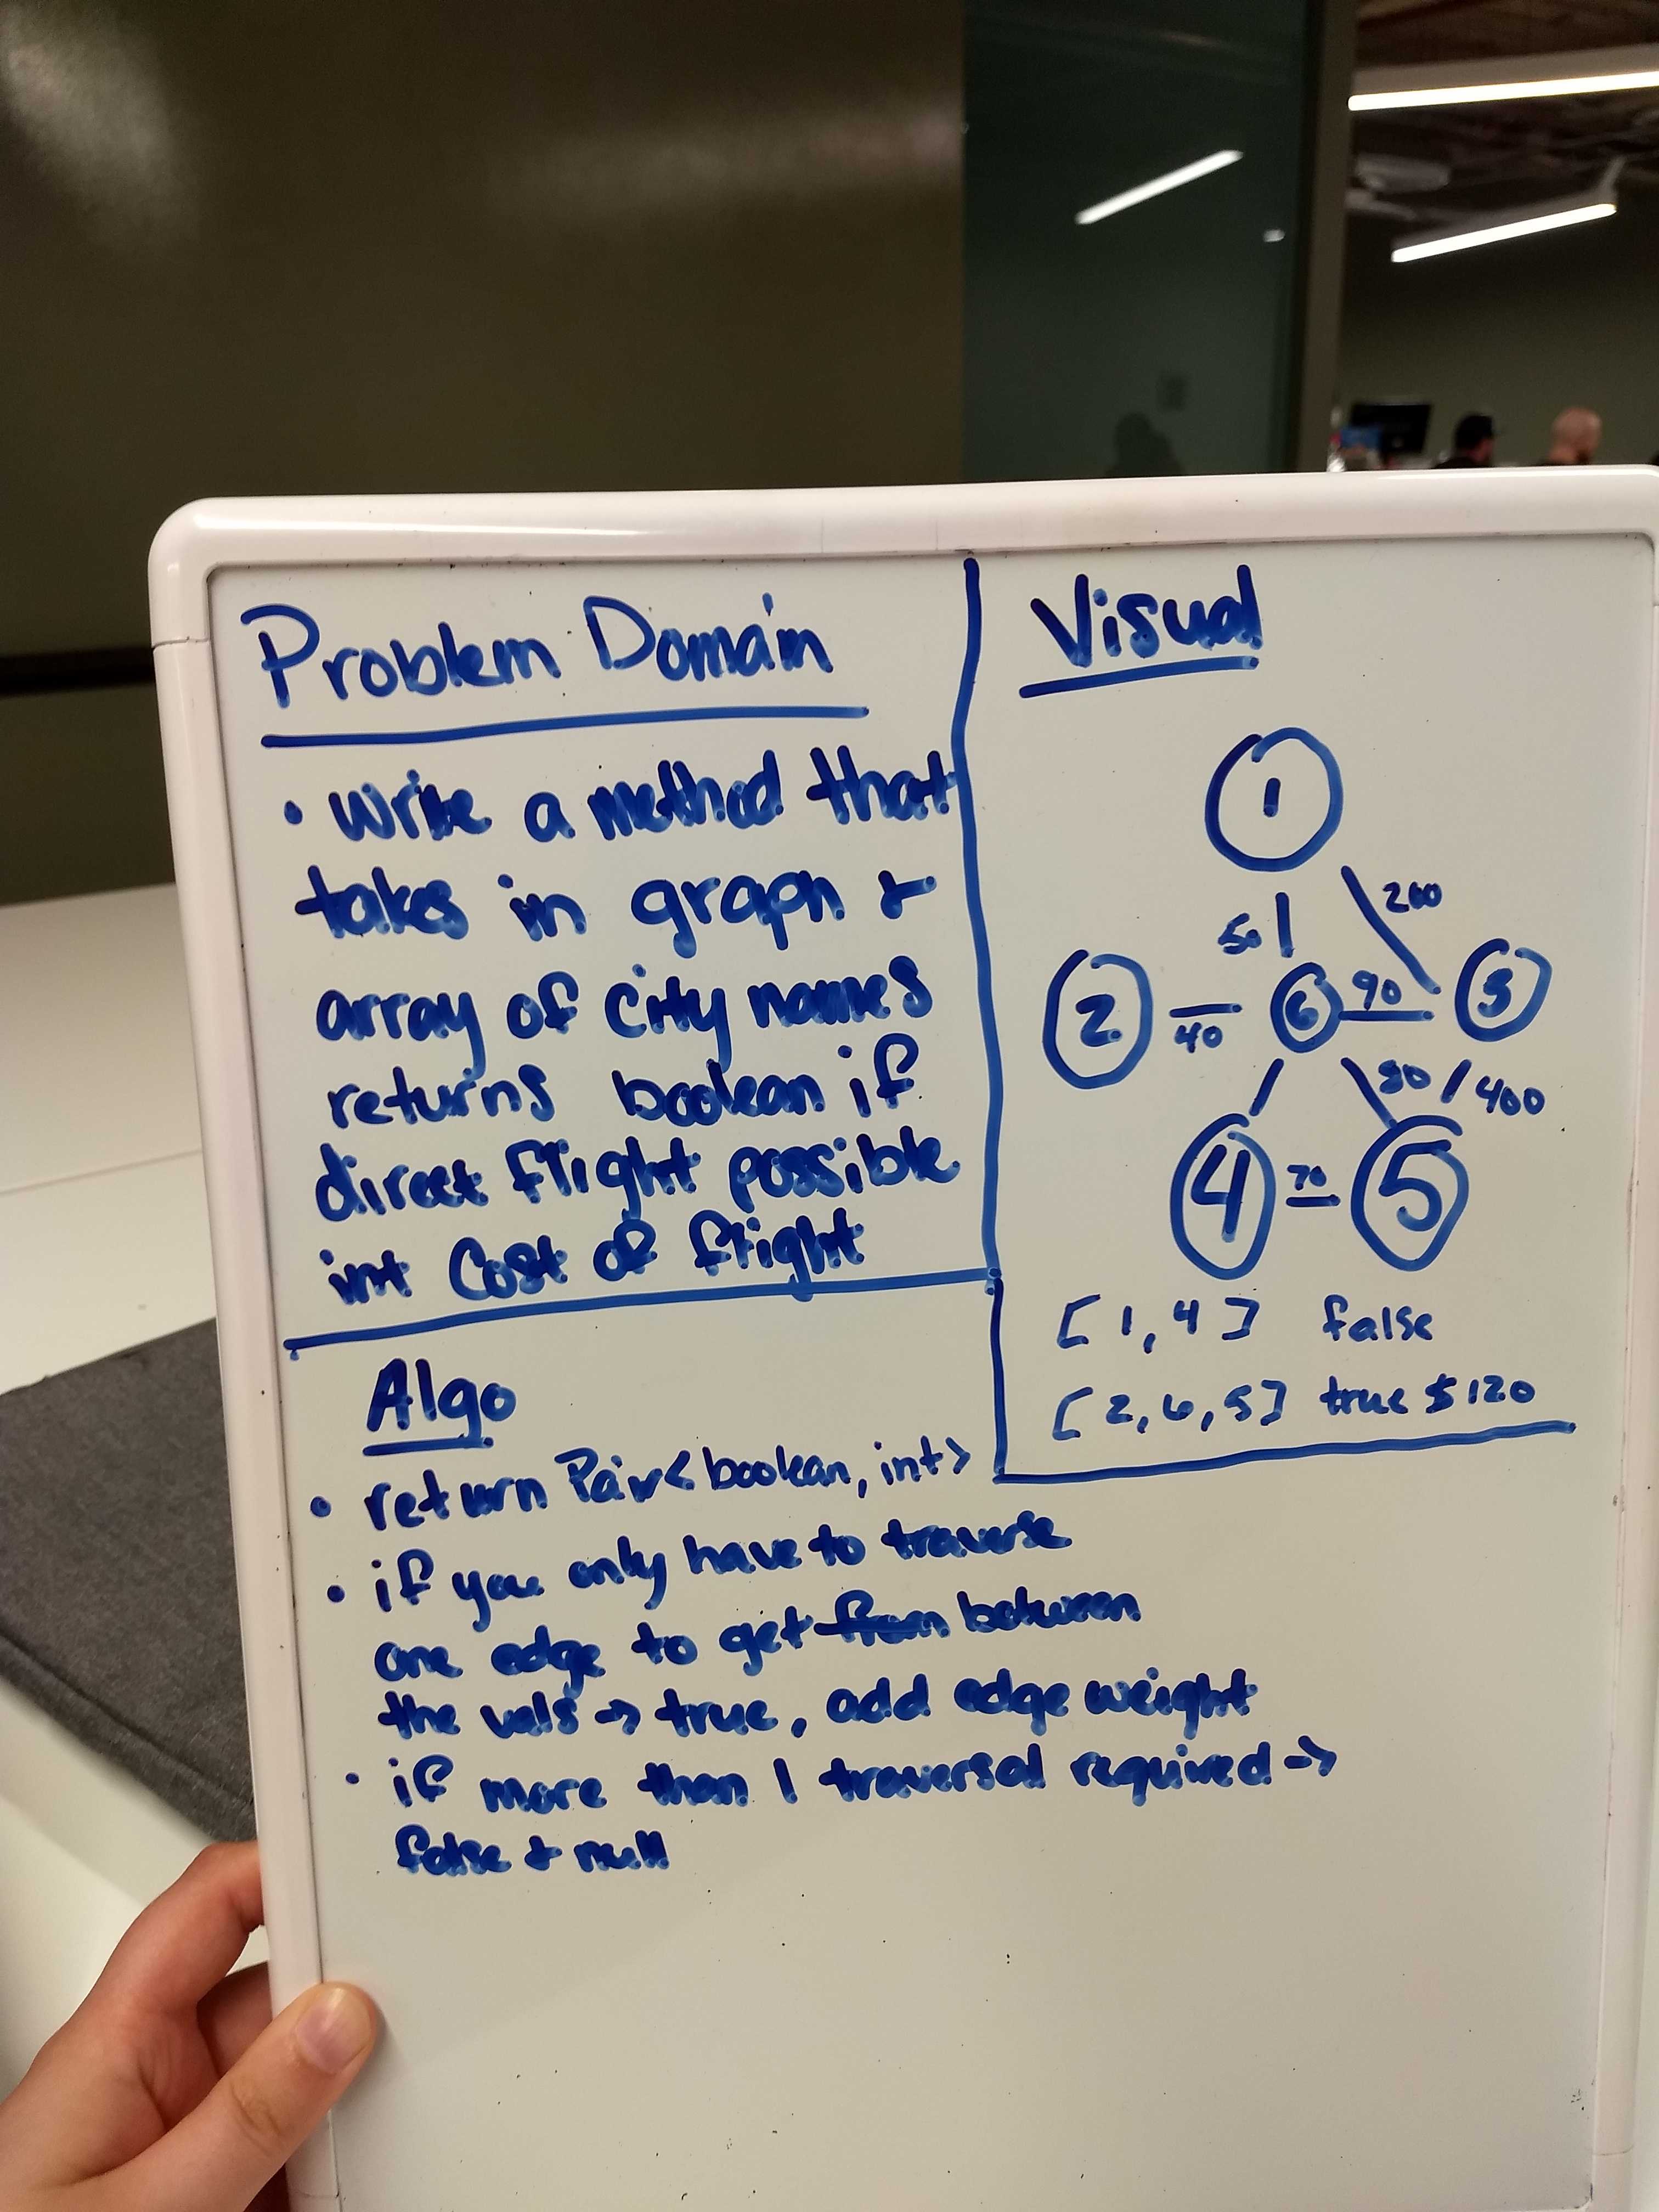 Problem Domain
• Write a method that
takes in graph &
array of city names
returns boolean if
direct flight possible
int Cost of flight
Visual
1
50
200
2
40
6
90
3
80
400
4
70
5
[1,4] false
[2,6,5] true $120
Algo
• return Pair<boolean, int>
• if you only have to traverse
one edge to get from between
the vals → true, add edge weight
• if more than 1 traversal required →
false & null